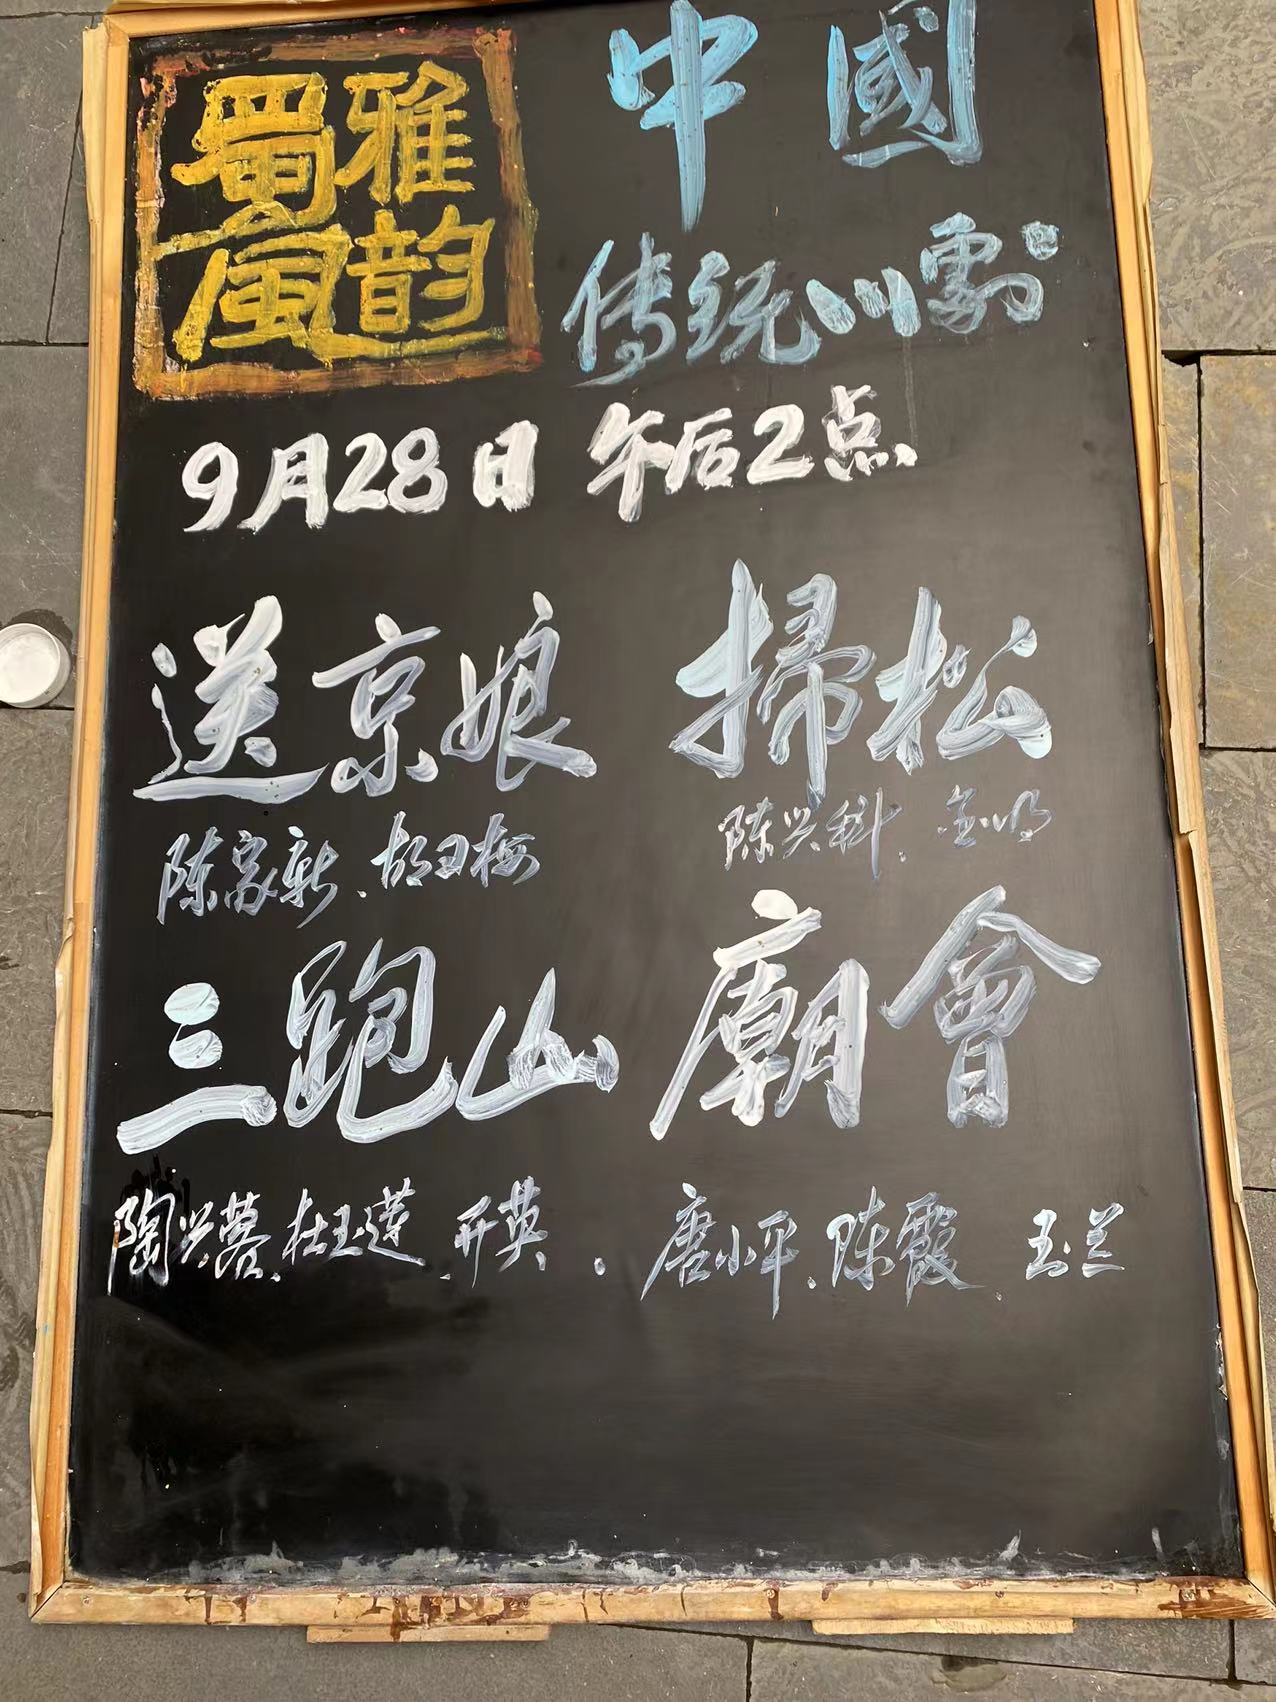 蜀風
雅韵
中國
传统川劇
9月28日 午后2点
送京娘 掃松
陈家新、胡玉梅 陈兴科、金明
三跑山 廟會
陶兴蓉、杜玉莲、开英. 唐小平、陈霞 玉兰